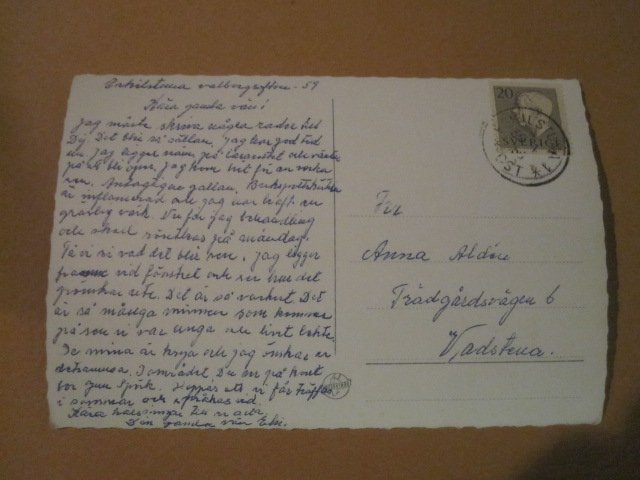 Eskilstuna valborgsafton -59
Kära gamla vän!
Jag måste skriva några rader till
Dig. Det blir så sällan. Jag har god tid
nu. Jag ligger på lasarettet och väntar
på att bli Jag kom hit för en vecka
sen. Antagligen gallan. Bukspottkörteln
är inflammerad och jag har haft en
värk. Nu får jag behandling
och skall röntgas på måndag.
Få vi se vad det blir sen. Jag ligger
vid fönstret och ser hur det
grönskar ute. Det är så vackert. Det
är så många minnen som kommer
på sen vi var unga och livet lekte.
De mina är krya och jag önskar er
detsamma. I området Du ser på kortet
bor Hoppas att vi får träffas
i sommar och språkas vid.
Kära hälsningar till er alla
Din gamla vän Elsi.
20
ESKILSTUNA 1
Fru
Anna Aldén
Trädgårdsvägen 6
Vadstena.